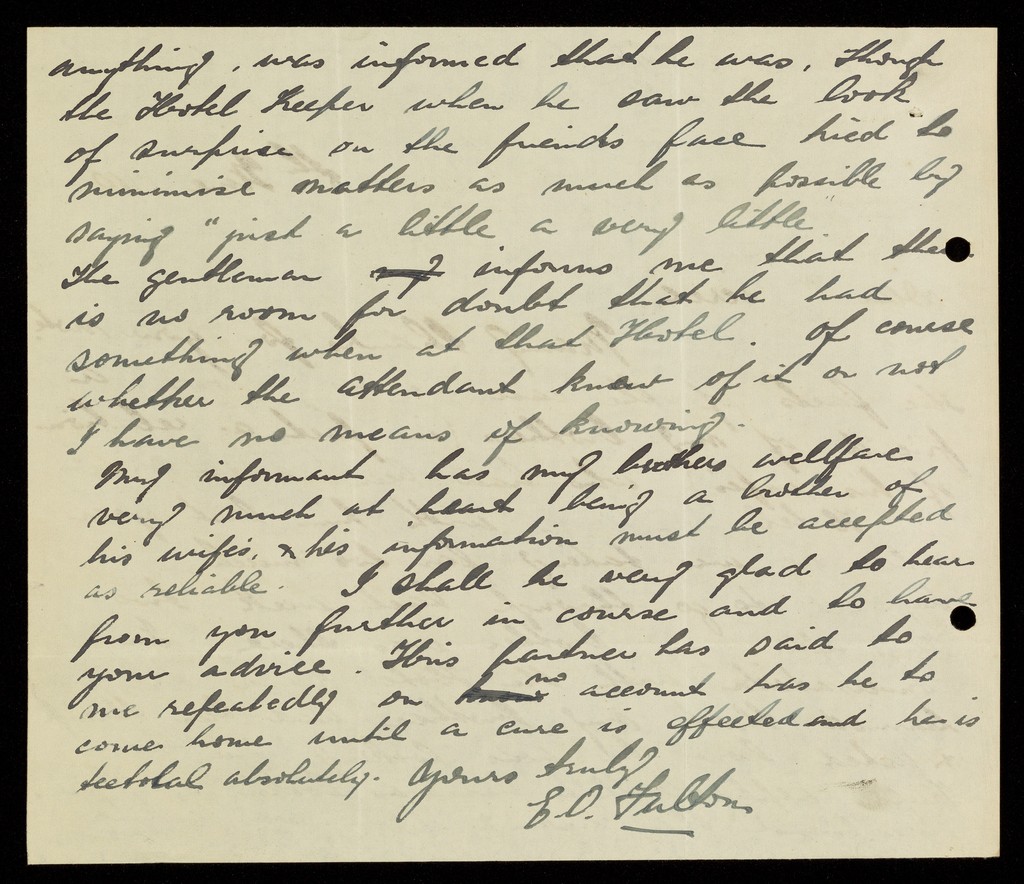 anything, was informed that he was, though
the Hotel Keeper when he saw the look
of surprise on the friends face tried to
minimise matters as much as possible by
saying "just a little a very little"
The gentleman informs me that there
is no room for doubt that he had
something when at that Hotel. Of course
whether the attendant knew of it or not
I have no means of knowing.
My informant has my brothers wellfare
very much at heart being a brother of
his wife's, & his information must be accepted
as reliable. I shall be very glad to hear
from you further in course and to have
your advice. His partner has said to
me repeatedly on no account has he to
come home until a cure is effected and he is
teetotal absolutely. Yours truly
E. O. Fulton